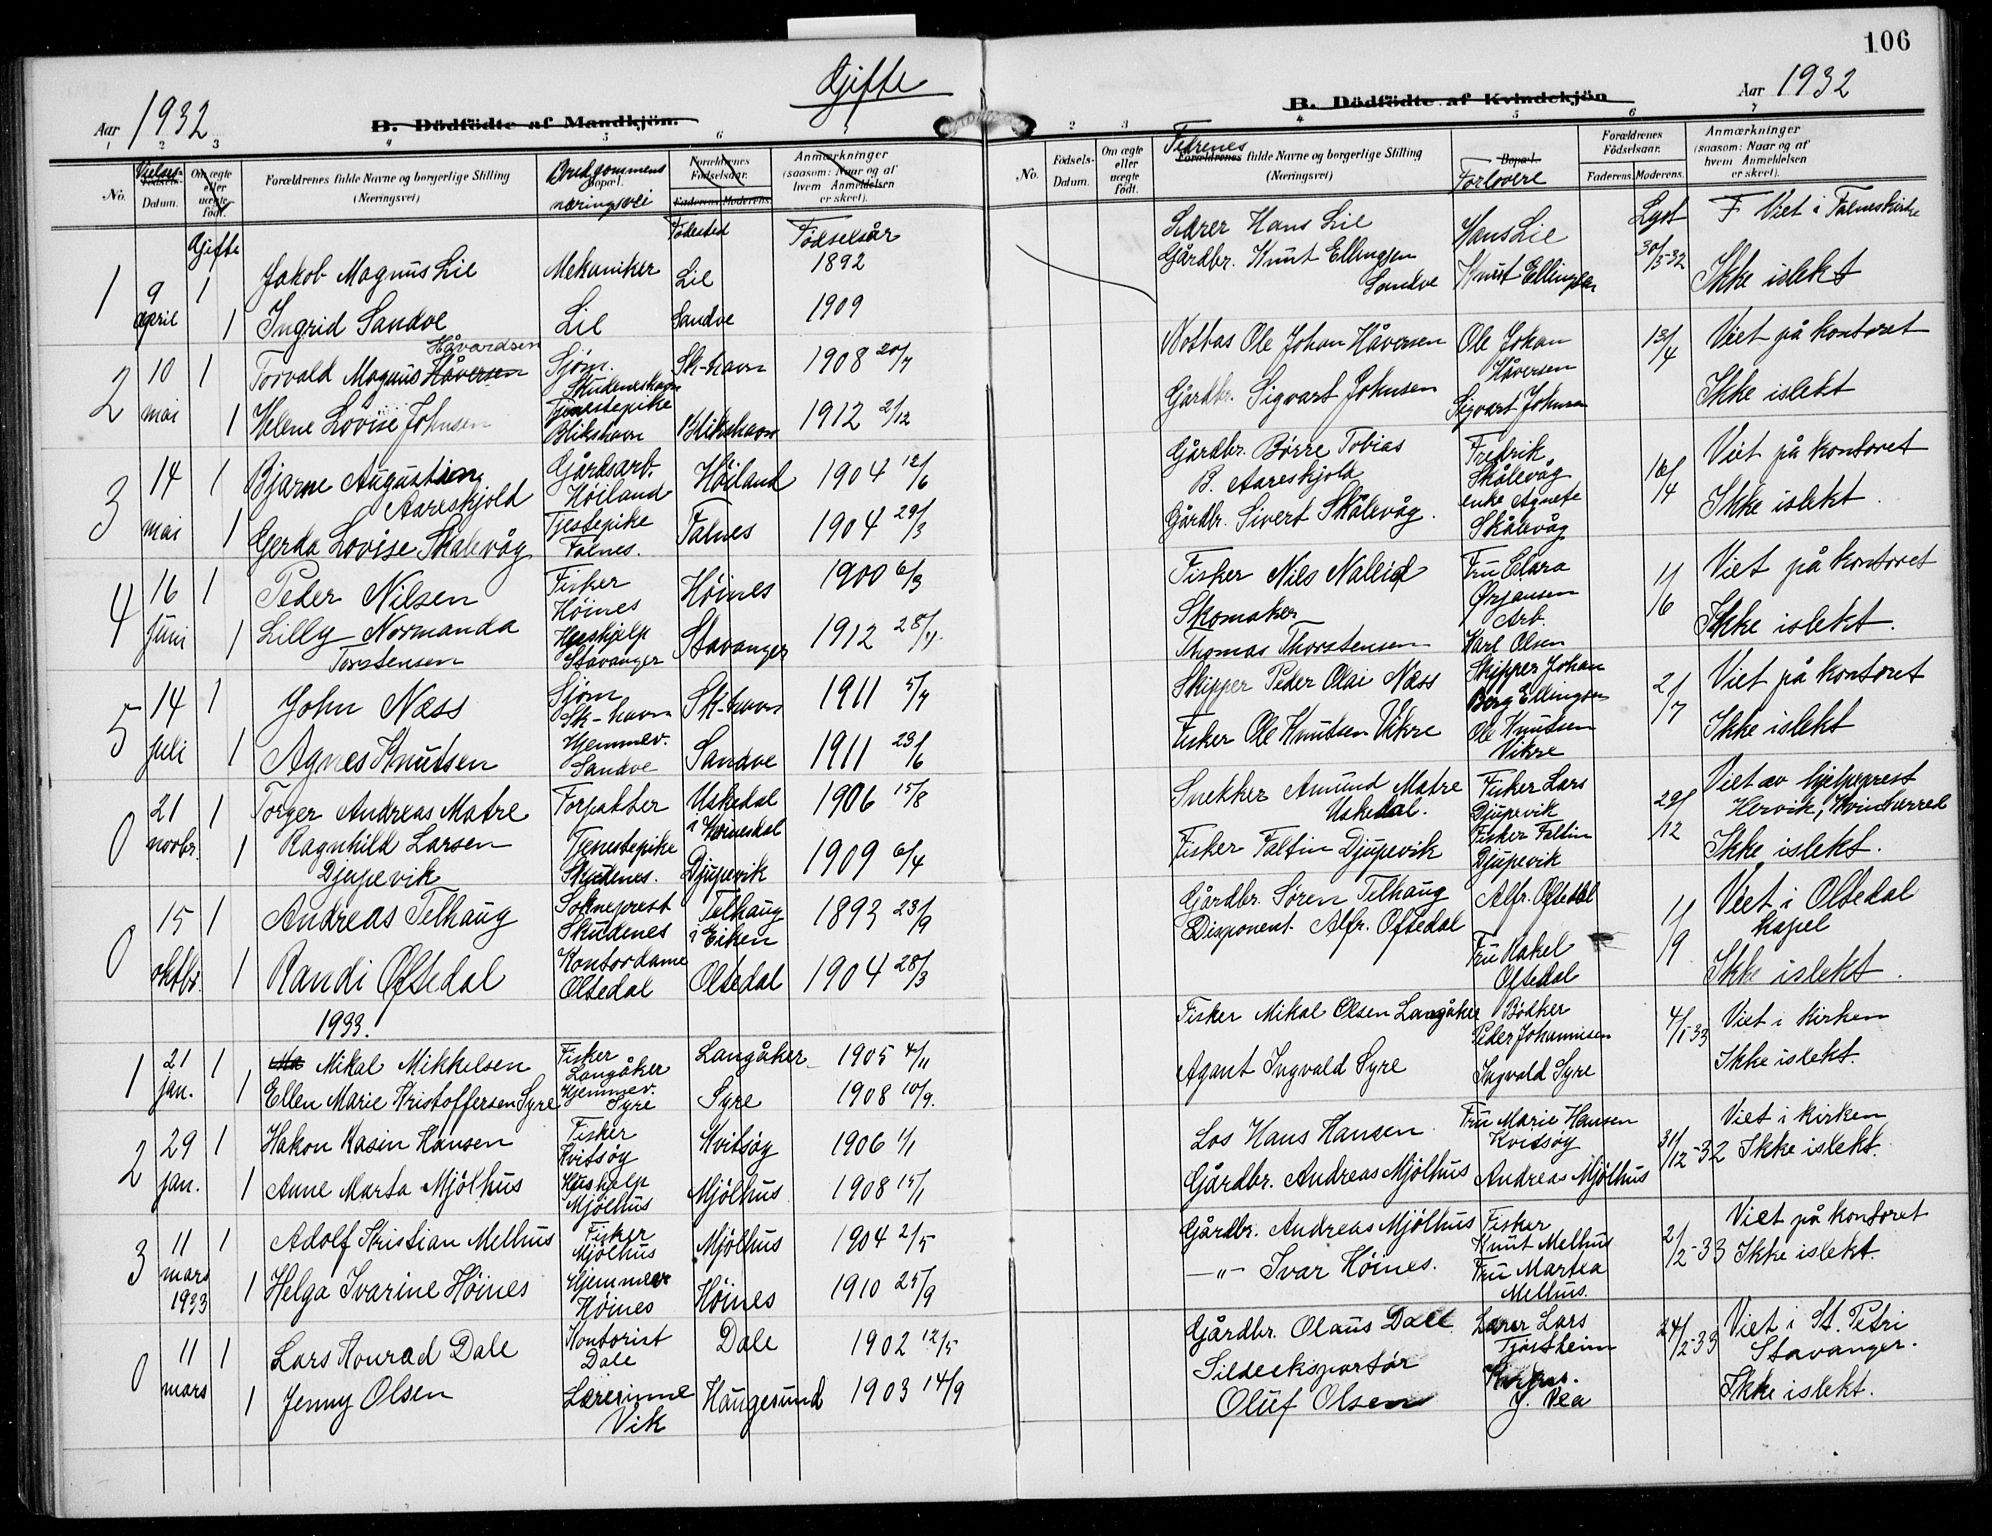 106
Gifte
Aar 1932
B. Dödfödte af Mandkjön.
1 2 3 4 5 6
No.
Vielses-
Datum.
Om ægte eller uægte født.
Forældrenes fulde Navne og borgerlige Stilling
(Næringsvei)
Brudgommens
Bopæl.
næringsvei
Forældrenes Fødselsaar.
Faderens. Moderens.
Anmærkninger
(saasom: Naar og af hvem Anmeldelsen er skeet).
Gifte
Fødested
Fødselsår
1 9 april 1 Jakob Magnus Lie Mekaniker Lie 1892
1 Ingrid Sandve Lie Sandve 1909
Håvardsen
2 10 mai 1 Torvald Magnus Håversen Sjøm. Skudeneshavn Sk-havn 1908 20/7
1 Helene Lovise Johnsen Tjenestepike Blikshavn Blikshavn 1912 2/12
3 14 mai 1 Bjarne Augustien Aareskjold Gårdsarb. Høiland Høiland 1904 12/6
1 Gerda Lovise Skålevåg Tjestepike Falnes. Falnes 1904 29/3
4 16 juni 1 Peder Nilsen Fisker Høines Høines 1900 6/3
1 Lilly Normanda Torstensen Hushjelp Stavanger Stavanger 1912 28/4.
5 14 juli 1 John Næss Sjøm Sk-havn Sk-havn 1911 5/7
1 Agnes Knutsen Hjemmev. Sandve Sandve 1911 23/6
0 21 novbr. 1 Torger Andreas Matre Forpakter Uskedal i Kvinesdal 1906 15/8
1 Ragnhild Larsen Djupevik Tjenestepike Skudenes. Djupevik 1909 6/4
0 15 oktbr. 1 Andreas Telhaug Sokneprest Skudenes Telhaug i Eiken 1893 23/9
1 Randi Oftedal Kontordame Oltedal Oltedal 1904 28/3
1933.
1 21 jan. 1 Mikal Mikkelsen Fisker Langåker Langåker 1905 4/11
1 Ellen Marie Kristoffersen Syre Hjemmev. Syre Syre 1908 10/9.
2 29 jan. 1 Håkon Kasin Hansen Fisker Kvitsøy Kvitsøy 1906 1/1
1 Anne Marta Mjølhus Hushjelp Mjølhus Mjølhus 1908 15/1
3 11 mars 1933 1 Adolf Kristian Melhus Fisker Mjølhus Mjølhus 1904 2/5
1 Helga Ivarine Høines Hjemmev Høines Høines 1910 25/9
0 11 mars 1 Lars Konrad Dale Kontorist Dale Dale 1902 12/5
1 Jenny Olsen Lærerinne Vik Haugesund 1903 14/9
B. Dödfödte af Kvindekjön
Aar 1932
2 3 4 5 6 7
No.
Fødsels-
Datum.
Om ægte eller uægte født.
Fedrenes
Forældrenes fulde Navne og borgerlige Stilling
(Næringsvei)
Bopæl.
Forlovere
Forældrenes Fødselsaar.
Faderens. Moderens.
Anmærkninger
(saasom: Naar og af hvem Anmeldelsen er skeet).
Lyst
Lærer Hans Lie Hans Lie 30/3-32 Viet i Falneskirke
Gårdbr. Knut Ellingsen Sandve Knut Ellingsen Ikke islekt
Notbas Ole Johan Håversen Ole Johan Håversen 13/4 Viet på kontoret
Gårdbr. Sigvart Johnsen Sigvart Johnsen Ikke islekt
Gårdbr. Børre Tobias B. Aareskjold Fredrik Skålevåg 16/4 Viet på kontoret
Gårdbr. Sivert Skålevåg. enke Agnete Skålevåg Ikke islekt.
Fisker Nils Naleid Fru Clara Ørjansen 1/6 Viet på kontoret
Skomaker Thomas Thorstensen Arb. Karl Olsen Ikke islekt.
Skipper Peder Olai Næss Skipper Johan Berg Ellingsen 2/7 Viet på kontoret
Fisker Ole Knutsen Vikre Ole Knutsen Vikre Ikke islekt
Snekker Amund Matre Uskedal. Fisker Lars Djupevik 29/12 Viet av hjelpeprest Hervik, Kvinherred
Fisker Faltin Djupevik Fisker Faltin Djupevik Ikke islekt.
Gårdbr. Søren Telhaug Alfr. Oftedal 1/9 Viet i Oltedal kapel
Disponent. Alfr. Oftedal Fru Rakel Oftedal Ikke islekt.
Fisker Mikal Olsen Langåker Bødker Peder Johannisen 4/1 33 Viet i kirken
Agent Ingvald Syre Ingvald Syre Ikke islekt.
Los Hans Hansen Fru Marie Hansen Kvitsøy 31/12-32 Viet i kirken
Gårdbr. Andreas Mjølhus Andreas Mjølhus Ikke islekt.
Gårdbr. Andreas Mjølhus Fisker Knut Melhus 2/2-33 Viet på kontoret
—"— Ivar Høines. Fru Martea Melhus. Ikke islekt.
Gårdbr. Olaus Dale Lærer Lars Tjøstheim 24/2-33 Viet i St. Petri Stavanger.
Sildeeksportør Oluf Olsen J. Vea Ikke islekt.